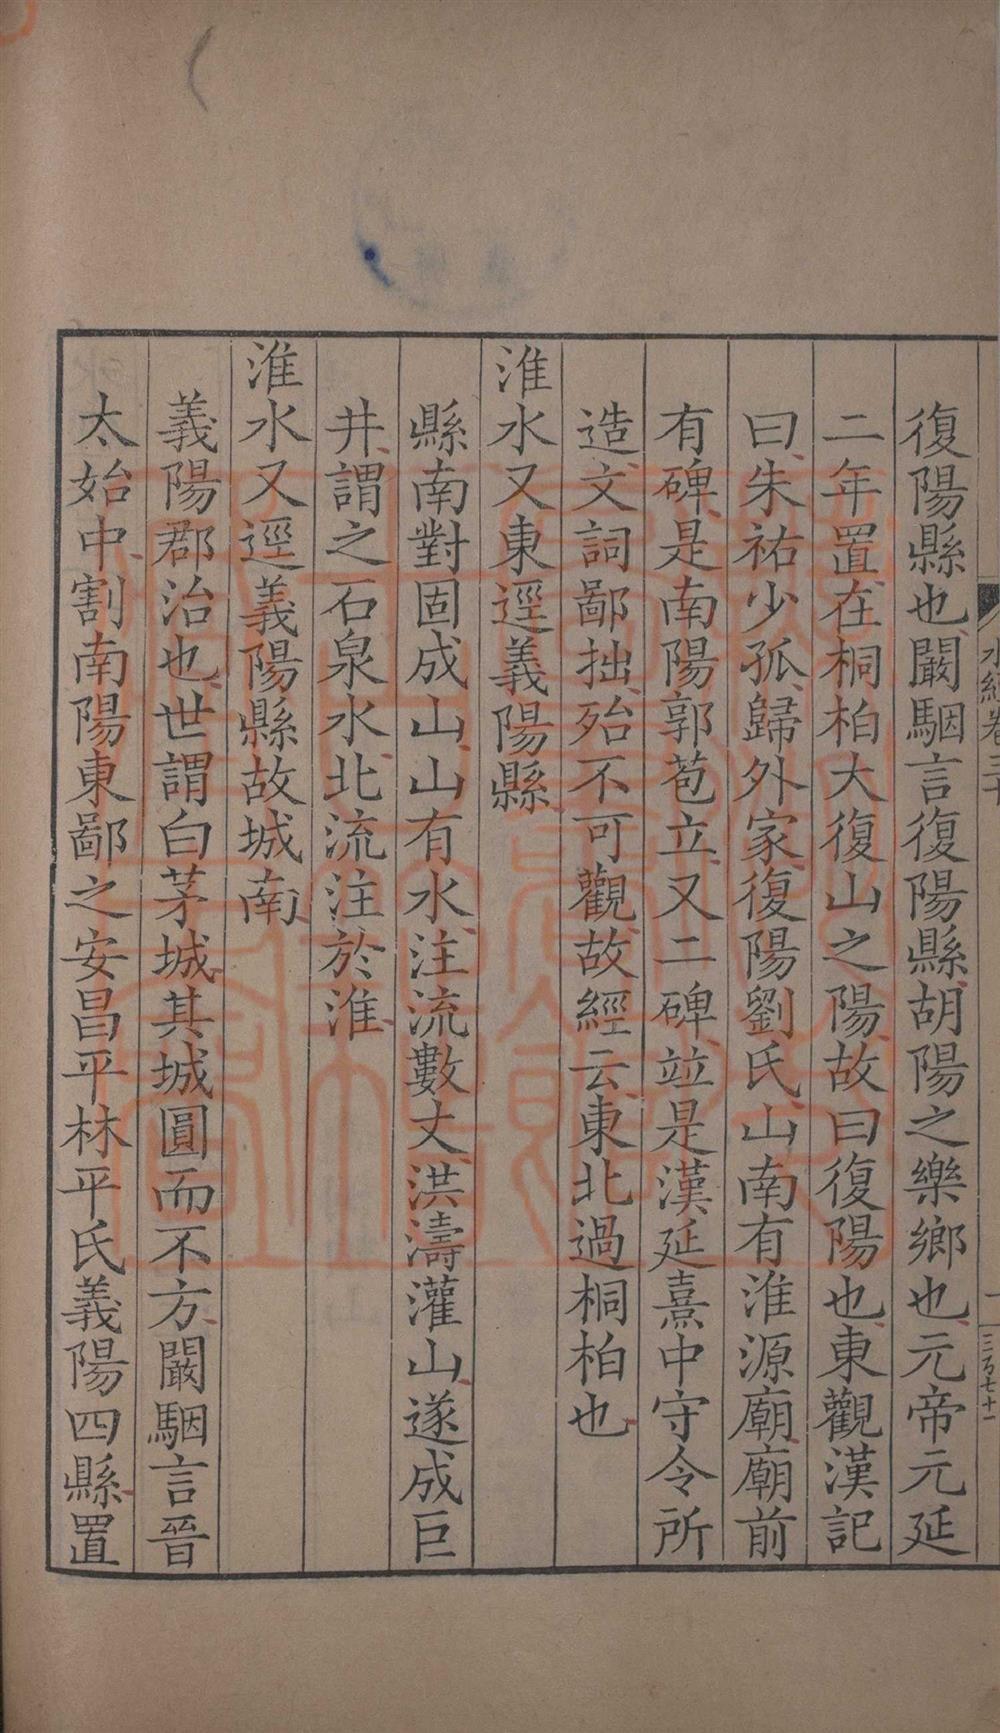 復陽縣也闞駰言復陽縣胡陽之樂鄉也元帝元延
二年置在桐柏大復山之陽故曰復陽也東觀漢記
曰朱祐少孤歸外家復陽劉氏山南有淮源廟廟前
有碑是南陽郭苞立又二碑竝是漢延熹中守令所
造文詞鄙拙殆不可觀故經云東北過桐柏也
淮水又東逕義陽縣
縣南對固成山山有水注流數丈洪濤灌山遂成巨
井謂之石泉水北流注於淮
淮水又逕義陽縣故城南
義陽郡治也世謂白茅城其城圓而不方闞駰言晉
太始中割南陽東鄙之安昌平林平氏義陽四縣置
水經卷三十
一
三百七十一